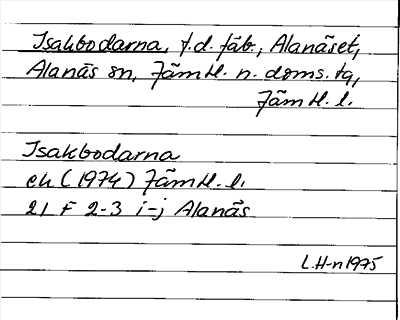 Isakbodarna, f.d. fäb., Alanäset,
Alanäs sn, Jämtl. n. doms. tg,
Jämtl. l.
Isakbodarna
ek (1974) Jämtl. l.
21 F 2-3 i-j Alanäs
L.H-n 1975